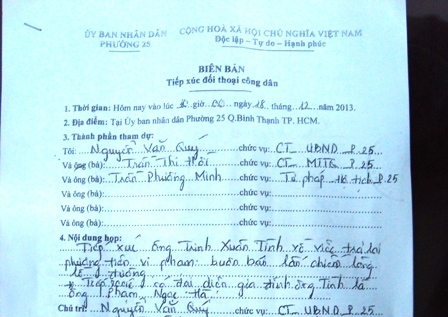 ỦY BAN NHÂN DÂN
PHƯỜNG 25
CỘNG HOÀ XÃ HỘI CHỦ NGHĨA VIỆT NAM
Độc lập - Tự do - Hạnh phúc
BIÊN BẢN
Tiếp xúc đối thoại công dân
1. Thời gian: Hôm nay vào lúc 8 giờ 00 ngày 18 tháng 12 năm 2013.
2. Địa điểm: Tại Ủy ban nhân dân Phường 25 Q.Bình Thạnh TP. HCM.
3. Thành phần tham dự:
Tôi: Nguyễn Văn Quý chức vụ: CT UBND P.25
Và ông (bà): Trần Thị chức vụ: CT MTTQ P.25
Và ông (bà): Trần Phương Minh chức vụ: Tư pháp hộ tịch P.25
Và ông (bà): chức vụ:
Và ông (bà): chức vụ:
Và ông (bà): chức vụ:
4. Nội dung họp:
Tiếp xúc ông Trịnh Xuân Tình về việc trả lại
phương tiện vi phạm buôn bán lấn chiếm lòng
lề đường
có đại diện gia đình ông Tình là
ông Phạm Ngọc Hà
Chủ trì: Nguyễn Văn Quý chức vụ: CT UBND P.25